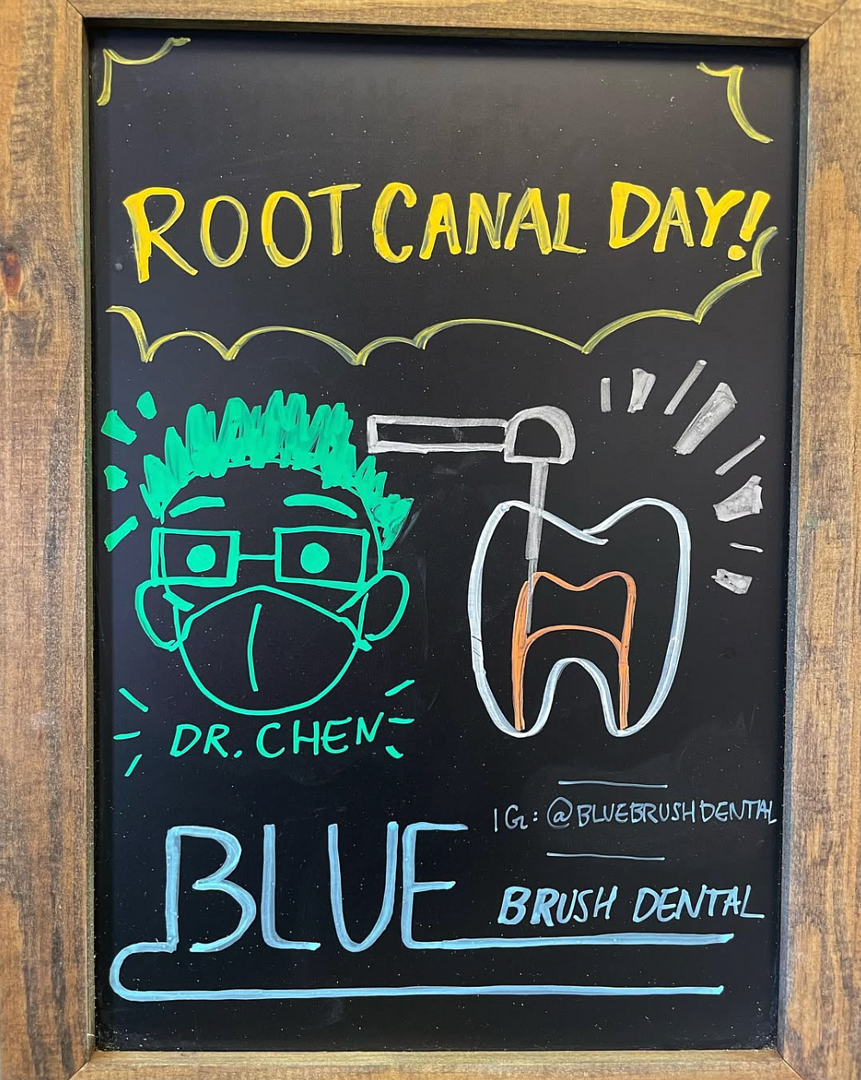 ROOT CANAL DAY!
DR. CHEN
IG: @BLUEBRUSHDENTAL
BLUE
BRUSH DENTAL